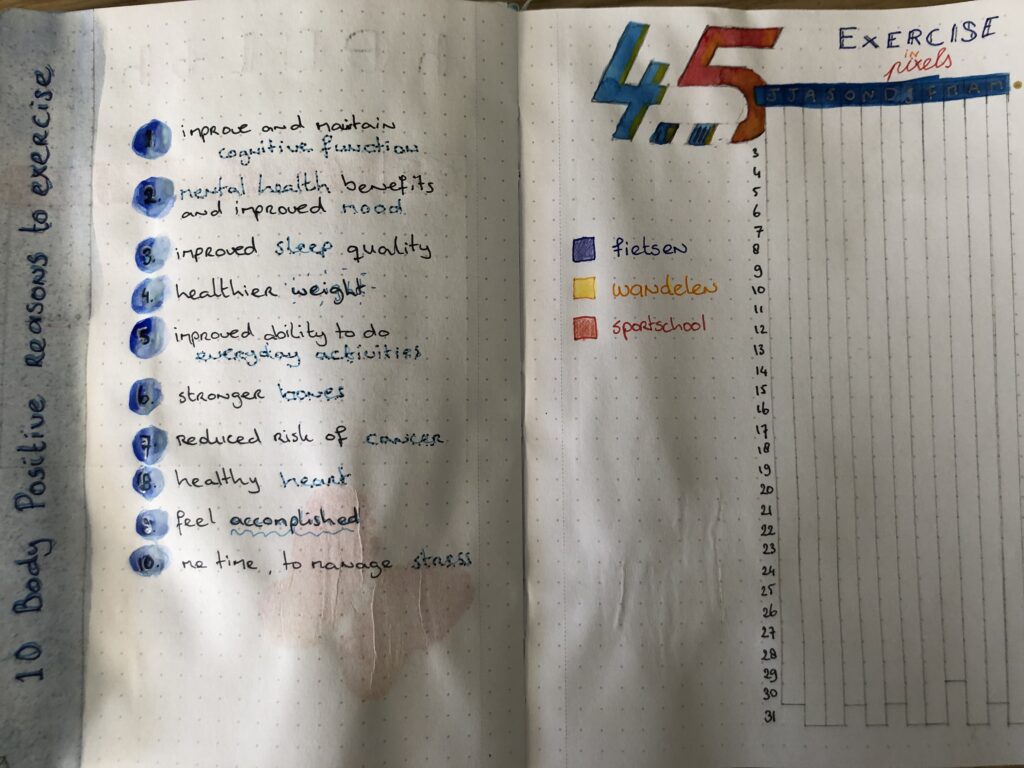 10 Body Positive reasons to exercise
1. improve and maintain
cognitive function
2. mental health benefits
and improved mood
3. improved sleep quality
4. healthier weight
5. improved ability to do
everyday activities
6. stronger bones
7. reduced risk of cancer
8. healthy heart
9. feel accomplished
10. me time, to manage stress
45
EXERCISE
in
pixels
J J A S O N D J F M A M
3
4
5
6
7
8
9
10
11
12
13
14
15
16
17
18
19
20
21
22
23
24
25
26
27
28
29
30
31
fietsen
wandelen
sportschool